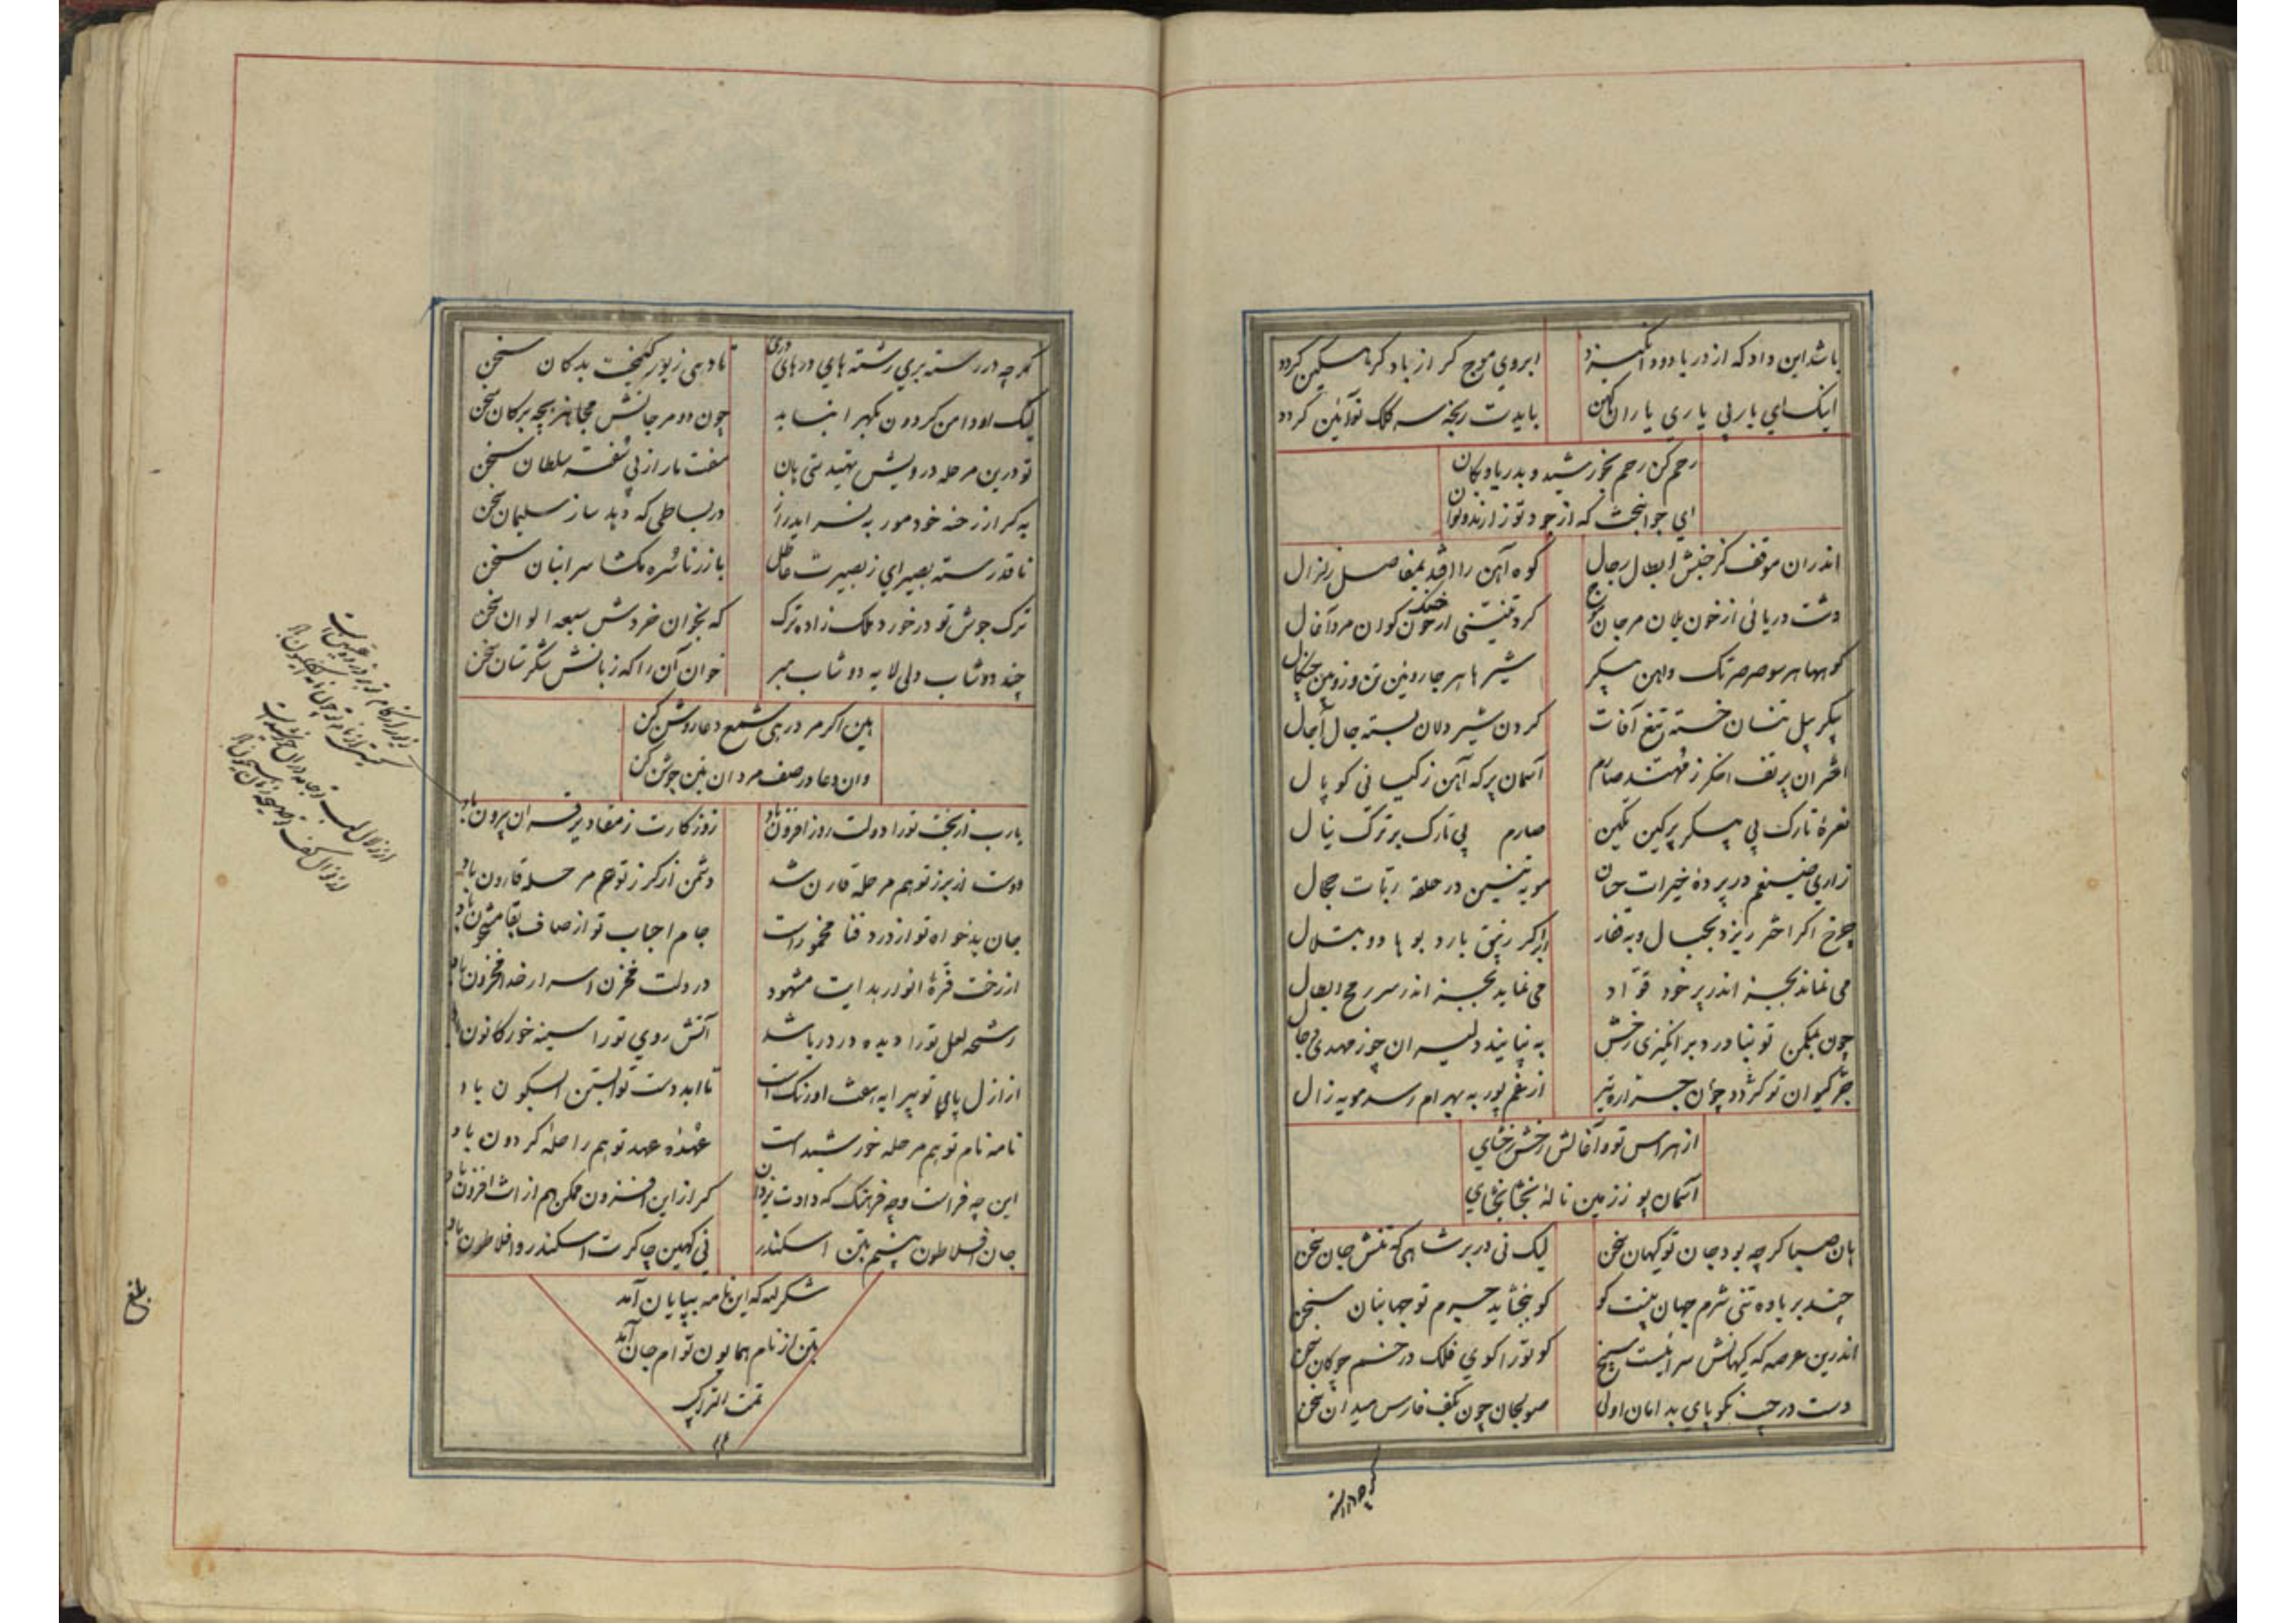 باشد این داد که از دریا دود انگیزد ابروی موج گر از باد کره مسکین گردد
اینک ای یار پی یاری یاران کهن بایدت ریخته سه کلک نوآئین گردد
رحم کن رحم بخورشید و بدریا و بکان
ای جوانبخت که از جود تو زارند و نوان
اندران موقف کز جنبش ابطال رجال کوه آهن را افتد بمفاصل زلزال
دشت دریائی از خون یلان مرجان موج
کوهها هر سو صرصر تک و آهن پیکر شیرها هر جا روئین تن و روئین چنگال
پیکر پیل تنان خسته تیغ آفات گردن شیر دلان بسته حال آجال
اختران پر تف اخگر ز مهند صارم آسمان پر که آهن ز کیانی کوپال
نعره تارک بی پیکر پر کین تکین صارم بی تارک بر ترک نیال
زاری ضیغم در پرده خیرات حسان مویه تنین در حلقه ربات حجال
چرخ اگر اختر ریزد بجبال و بقفار ابر اگر زیبق بارد بوهاد و بتلال
می نماند بجز اندر بر خود قواد می نماید بجز اندر سر رمح ابطال
چون بمکمن تو بناورد برانگیزی رخش به نپایند دلیران چو ز مهدی دجال
از غم پور به بهرام رسد مویه زال
از هراس تو و آغالش رخش رخشای
آسمان پو ز زمین ناله بخشا بخشای
هان صبا گرچه بود جان تو کیهان سخن لیک نی در بر شاهی که تنش جان سخن
چند بر باده تنی شرم جهان بینت کو کو ببخشاید جرم تو جهانبان سخن
اندرین عرصه که کیهانش سرائیست سپنج کو تو را گوی فلک در خم چوگان سخن
دست در جیب نکو پای بدامان اولی صولجان چون بکف فارس میدان سخن
گرچه در رسته
گرچه در رسته پری رشته های در های دری تا دهی زیور گنجت بدکان سخن
لیک او دامن گردون بگهر انباید چون دو مرجانش مجاهز بچه برکان سخن
تو درین مرحله درویش تهیدستی هان مفت مار از پی سفته سلطان سخن
به گر از رخنه خود مور به نسراید راز در بساطی که دهد ساز سلیمان سخن
ناقد رسته بصیر ای ز بصیرت عاطل باز زر ناسره مگشا سر انبان سخن
ترک جوش تو در خورد ملک زاده ترک که بخوان خردش سبعه الوان سخن
چند دوشاب دلی لابه دوشاب مبر خوان آن را که زبانش شکرستان سخن
هین اگر مرد رهی شمع دعا روشن کن
وان دعا در صف مردان بتن جوشن کن
یارب از بخت تو را دولت روز افزون باد روزگارت ز مقادیر قران بیرون باد
دوست از برز تو هم مرحله قارن شد دشمن از گرز تو هم مرحله قارون باد
جان بدخواه تو از درد فنا مخمور است جام احباب تو از صاف بقا مشحون باد
از رخت قره انوار هدایت مشهود در دلت مخزن اسرار خدا مخزون باد
رشحه لعل تو را دیده در دریا شد آتش روی تو را سینه خور کانون باد
از ازل پای تو پیرایه هفت اورنگ است تا ابد دست تو آبستن السیکون باد
نامه نام تو هم مرحله خورشید است عهده عهد تو هم راحله گردون باد
این چه فر است و چه فرهنگ که دادت یزدان گر از این افزون ممکن هم از این افزون باد
جان افلاطون بینم بتن اسکندر نی کهین چاکرت اسکندر و افلاطون باد
شکر لله که این نامه بپایان آمد
بتن از نام همایون تو ام جان آمد
تمت الترکیب
بلغ